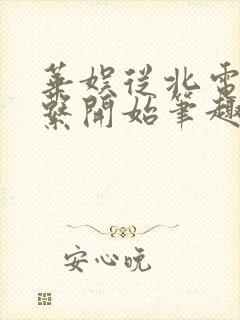 華娛從北電
繫開始筆趣
安心玩